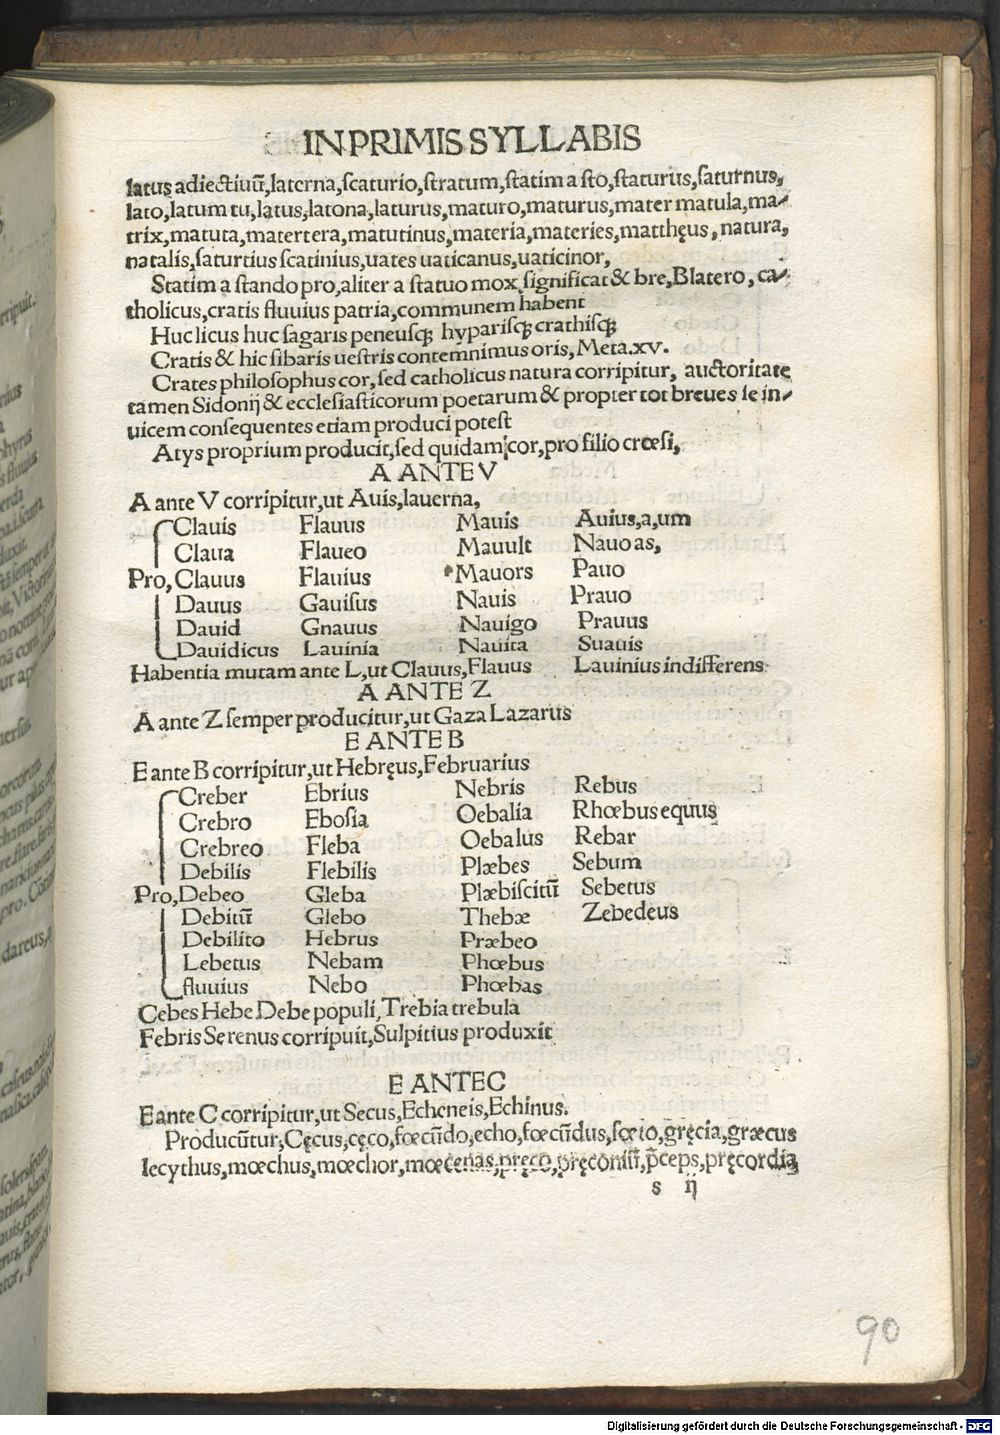 IN PRIMIS SYLLABIS
latus adiectiuū, laterna, ſcaturio, ſtratum, ſtatim a ſto, ſtaturus, ſaturnus,
lato, latum tu, latus, latona, laturus, maturo, maturus, mater matula, ma-
trix, matuta, matertera, matutinus, materia, materies, matthęus, natura,
natalis, ſaturtius ſcatinius, uates uaticanus, uaticinor,
Statim a ſtando pro, aliter a ſtatuo mox ſignificat & bre, Blatero, ca-
tholicus, cratis fluuius patria, communem habent
Huc licus huc ſagaris peneuſqꝫ hypariſqꝫ crathiſqꝫ
Cratis & hic ſibaris ueſtris contemnimus oris, Meta. xv.
Crates philoſophus cor, ſed catholicus natura corripitur, auctoritate
tamen Sidonij & eccleſiaſticorum poetarum & propter tot breues ſe in-
uicem conſequentes etiam produci poteſt
Atys proprium producit, ſed quidam cor, pro filio crœſi,
A ANTE V
A ante V corripitur, ut Auis, lauerna,
Clauis Flauus Mauis Auius, a, um
Claua Flaueo Mauult Nauo as,
Pro, Clauus Flauius Mauors Pauo
Dauus Gauiſus Nauis Prauo
Dauid Gnauus Nauigo Prauus
Dauidicus Lauinia Nauita Suauis
Habentia mutam ante L, ut Clauus, Flauus Lauinius indifferens
A ANTE Z
A ante Z ſemper producitur, ut Gaza Lazarus
E ANTE B
E ante B corripitur, ut Hebręus, Februarius
Creber Ebrius Nebris Rebus
Crebro Eboſia Oebalia Rhœbus equus
Crebreo Fleba Oebalus Rebar
Debilis Flebilis Plæbes Sebum
Pro, Debeo Gleba Plæbiſcitū Sebetus
Debitū Glebo Thebæ Zebedeus
Debilito Hebrus Præbeo
Lebetus Nebam Phœbus
fluuius Nebo Phœbas
Cebes Hebe Debe populi, Trebia trebula
Febris Serenus corripuit, Sulpitius produxit
E ANTE C
E ante C corripitur, ut Secus, Echeneis, Echinus.
Producūtur, Cęcus, cęco, fœcūdo, echo, fœcūdus, fœto, gręcia, græcus
lecythus, mœchus, mœchor, mœcenas, pręco, pręconiū, p̄ceps, pręcordia
s ij
90
Digitalisierung gefördert durch die Deutsche Forschungsgemeinschaft - DFG